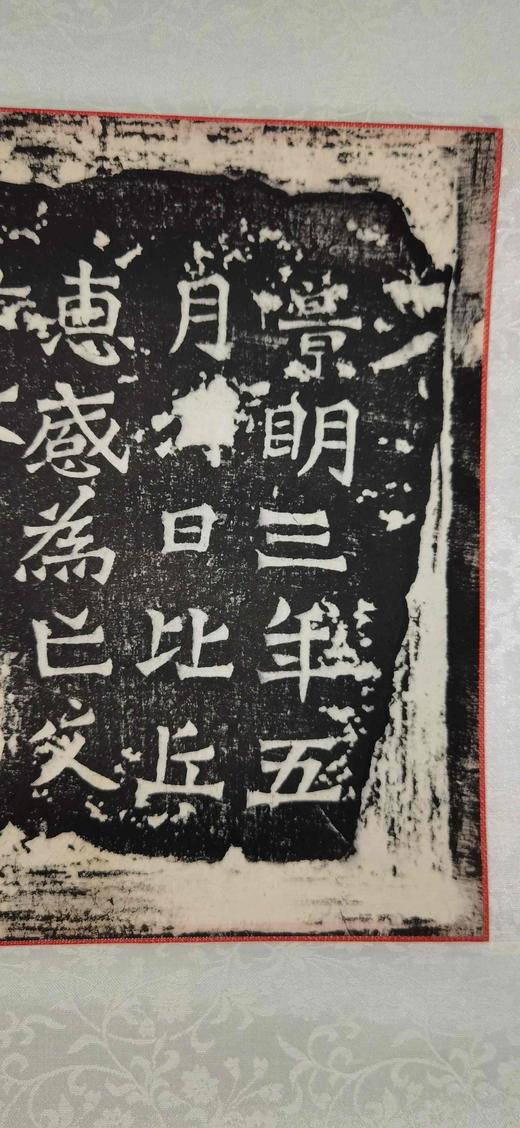 景明三年五
月日比丘
惠感為亡父